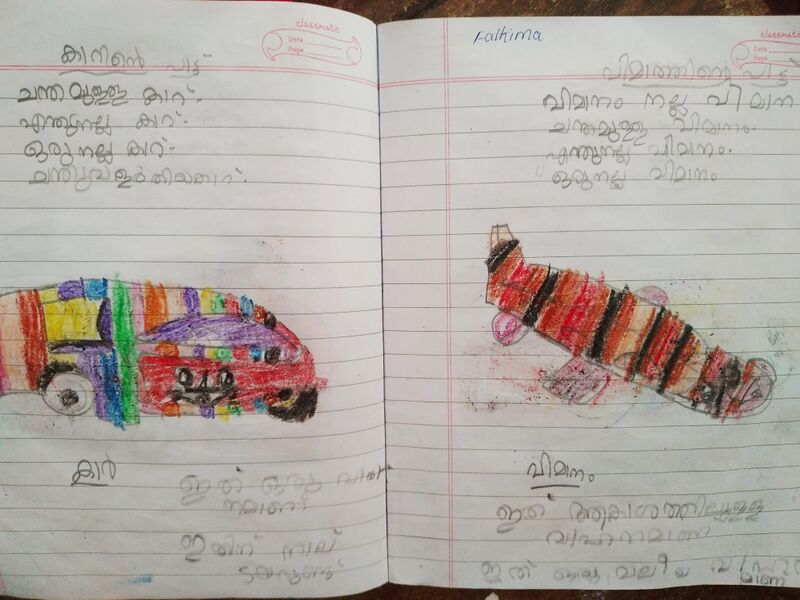 classmate
Date
Page
കാറിന്റെ പാട്ട്
ചന്തമുള്ള കാറ്.
എന്തുനല്ല കാറ്.
ഒരു നല്ല കാറ്.
കാർ
ഇത് ഒരു
നമാണ്
ഇതിന് നാല്
classmate
Date
Page
Fathima
വിമാത്തിന്റെ പാട്ട്
വിമാനം നല്ല വിമാന
ചന്തമുള്ള വിമാനം.
എന്തുനല്ല വിമാനം.
ഒരുനല്ല വിമാനം
വിമാനം
ഇത് ആകാശത്തിലുള്ള
വാഹനമാണ്
ഇത് ഒരു വലീയ
മാണ്